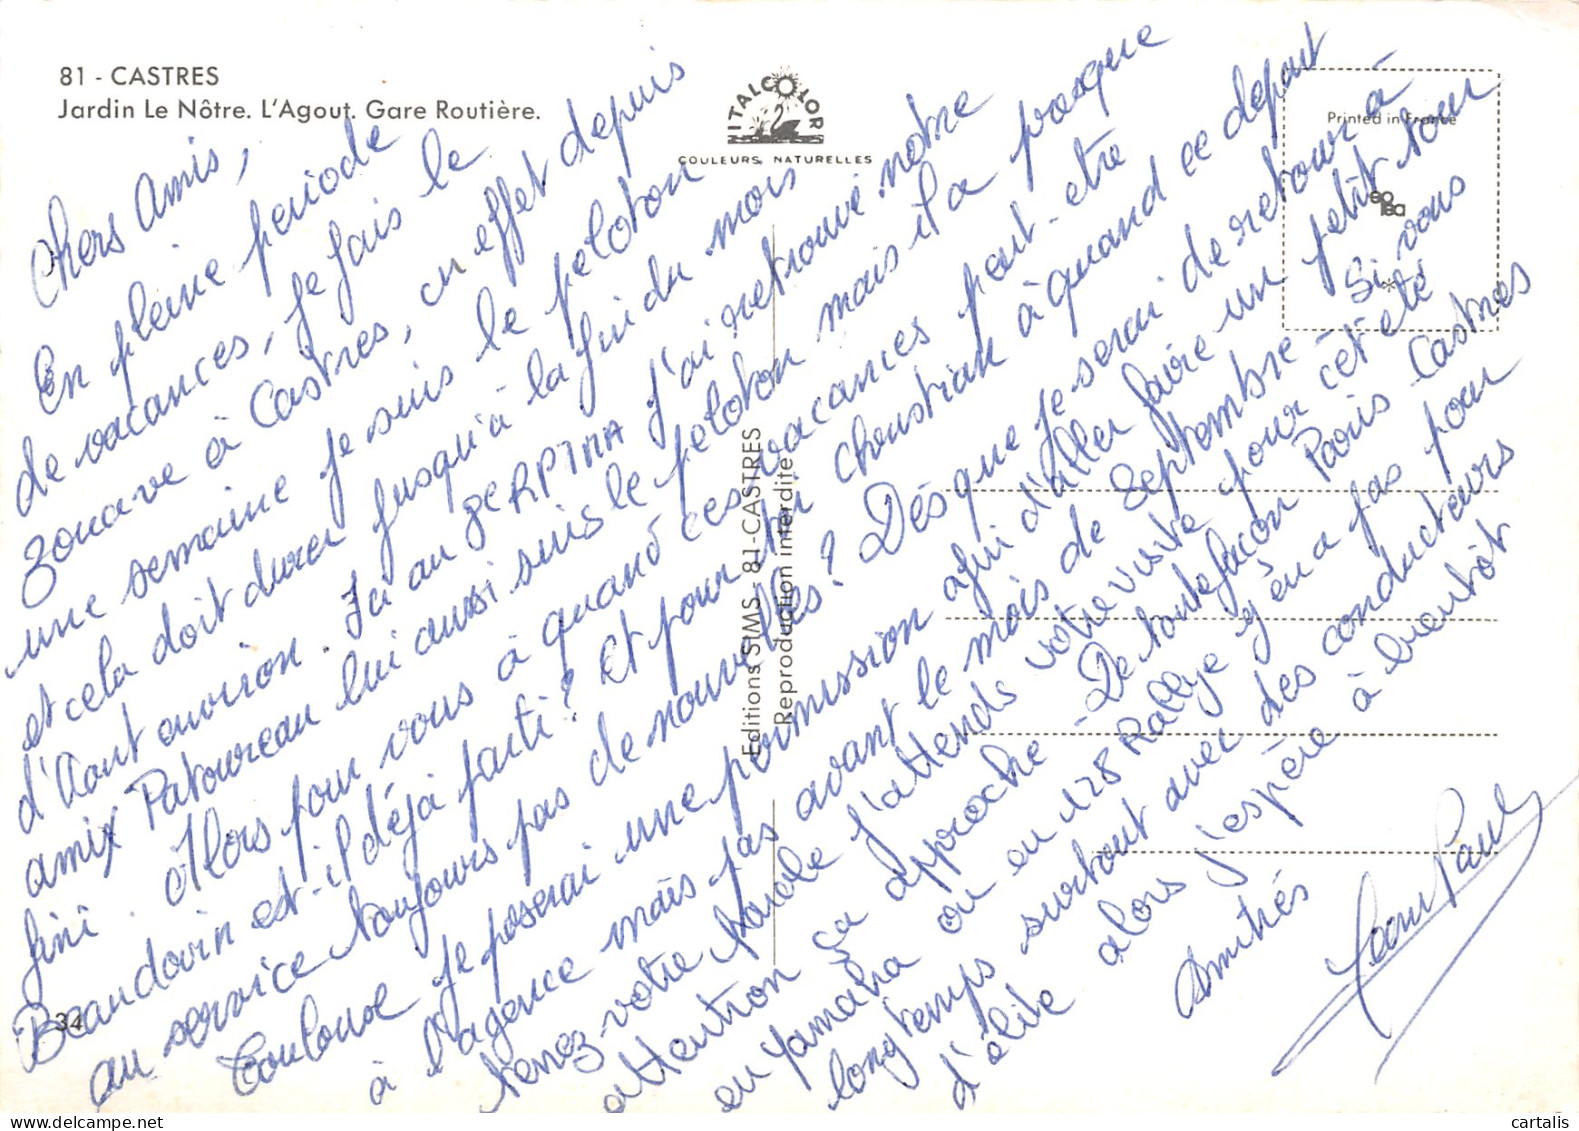 81 - CASTRES
Jardin Le Nôtre. L'Agout. Gare Routière.
ITALCOLOR
COULEURS NATURELLES
Printed in France
Editions SIMS - 81-CASTRES
Reproduction interdite
34
Chers Amis,
En pleine periode
de vacances, je fais le
zouave à Castres, en effet depuis
une semaine je suis le peloton
et cela doit durer jusqu'à la fin du mois
d'Aout environ. J'ai retrouvé notre
ami Patoureau lui aussi suis le peloton mais il a presque
fini. Alors pour vous à quand ces vacances peut-etre
Beaudouin est-il déjà parti? Et pour toi Christian à quand ce depart
au service toujours pas de nouvelles? Dés que je serai de retour à
Toulouse je poserai une permission afin d'aller faire un petit tour
à l'agence mais pas avant le mois de Septembre - Si vous
tenez votre parole j'attends votre visite pour cet été
attention ça approche - De toute façon Paris Castres
en Yamaha ou en 128 Rallye y en a pas pour
longtemps surtout avec des conducteurs
d'élite alors j'espère à bientôt
Amitiés
Jean Paul